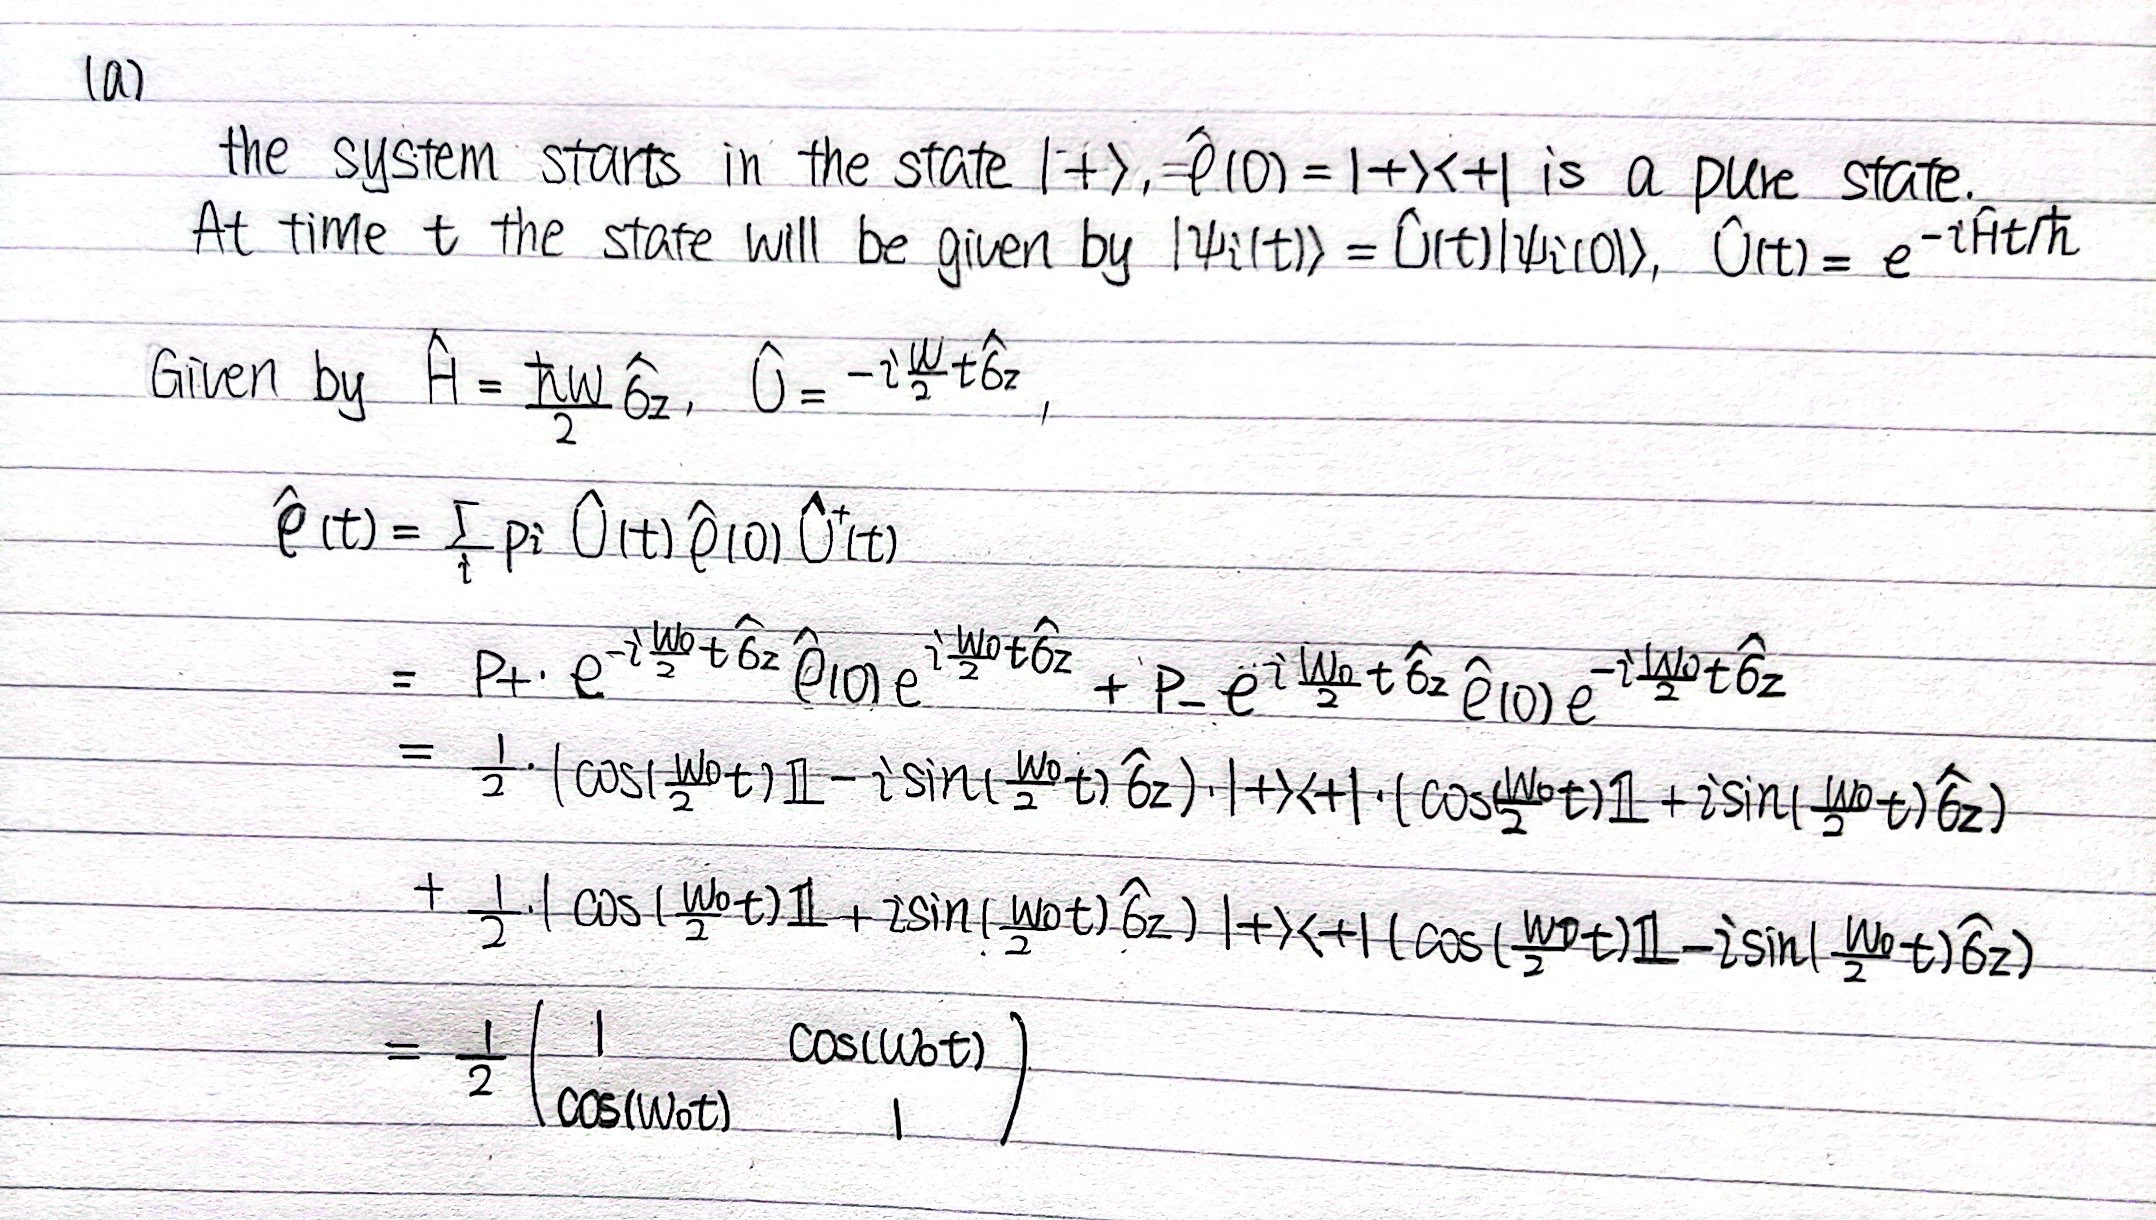 (a)
the system starts in the state |+⟩, ρ̂(0) = |+⟩⟨+| is a pure state.
At time t the state will be given by |ψi(t)⟩ = Û(t)|ψi(0)⟩, Û(t) = e^{-iĤt/ħ}
Given by Ĥ = ħω/2 σ̂z, Û = -i ω/2 t σ̂z,
ρ̂(t) = Σ_i pi Û(t) ρ̂(0) Û†(t)
= P+ · e^{-i ω0/2 t σ̂z} ρ̂(0) e^{i ω0/2 t σ̂z} + P- e^{i ω0/2 t σ̂z} ρ̂(0) e^{-i ω0/2 t σ̂z}
= 1/2 · (cos(ω0/2 t)𝟙 - i sin(ω0/2 t) σ̂z) · |+⟩⟨+| · (cos(ω0/2 t)𝟙 + i sin(ω0/2 t) σ̂z)
+ 1/2 · (cos(ω0/2 t)𝟙 + i sin(ω0/2 t) σ̂z) |+⟩⟨+| (cos(ω0/2 t)𝟙 - i sin(ω0/2 t) σ̂z)
= 1/2 ( 1 cos(ω0t)
cos(ω0t) 1 )